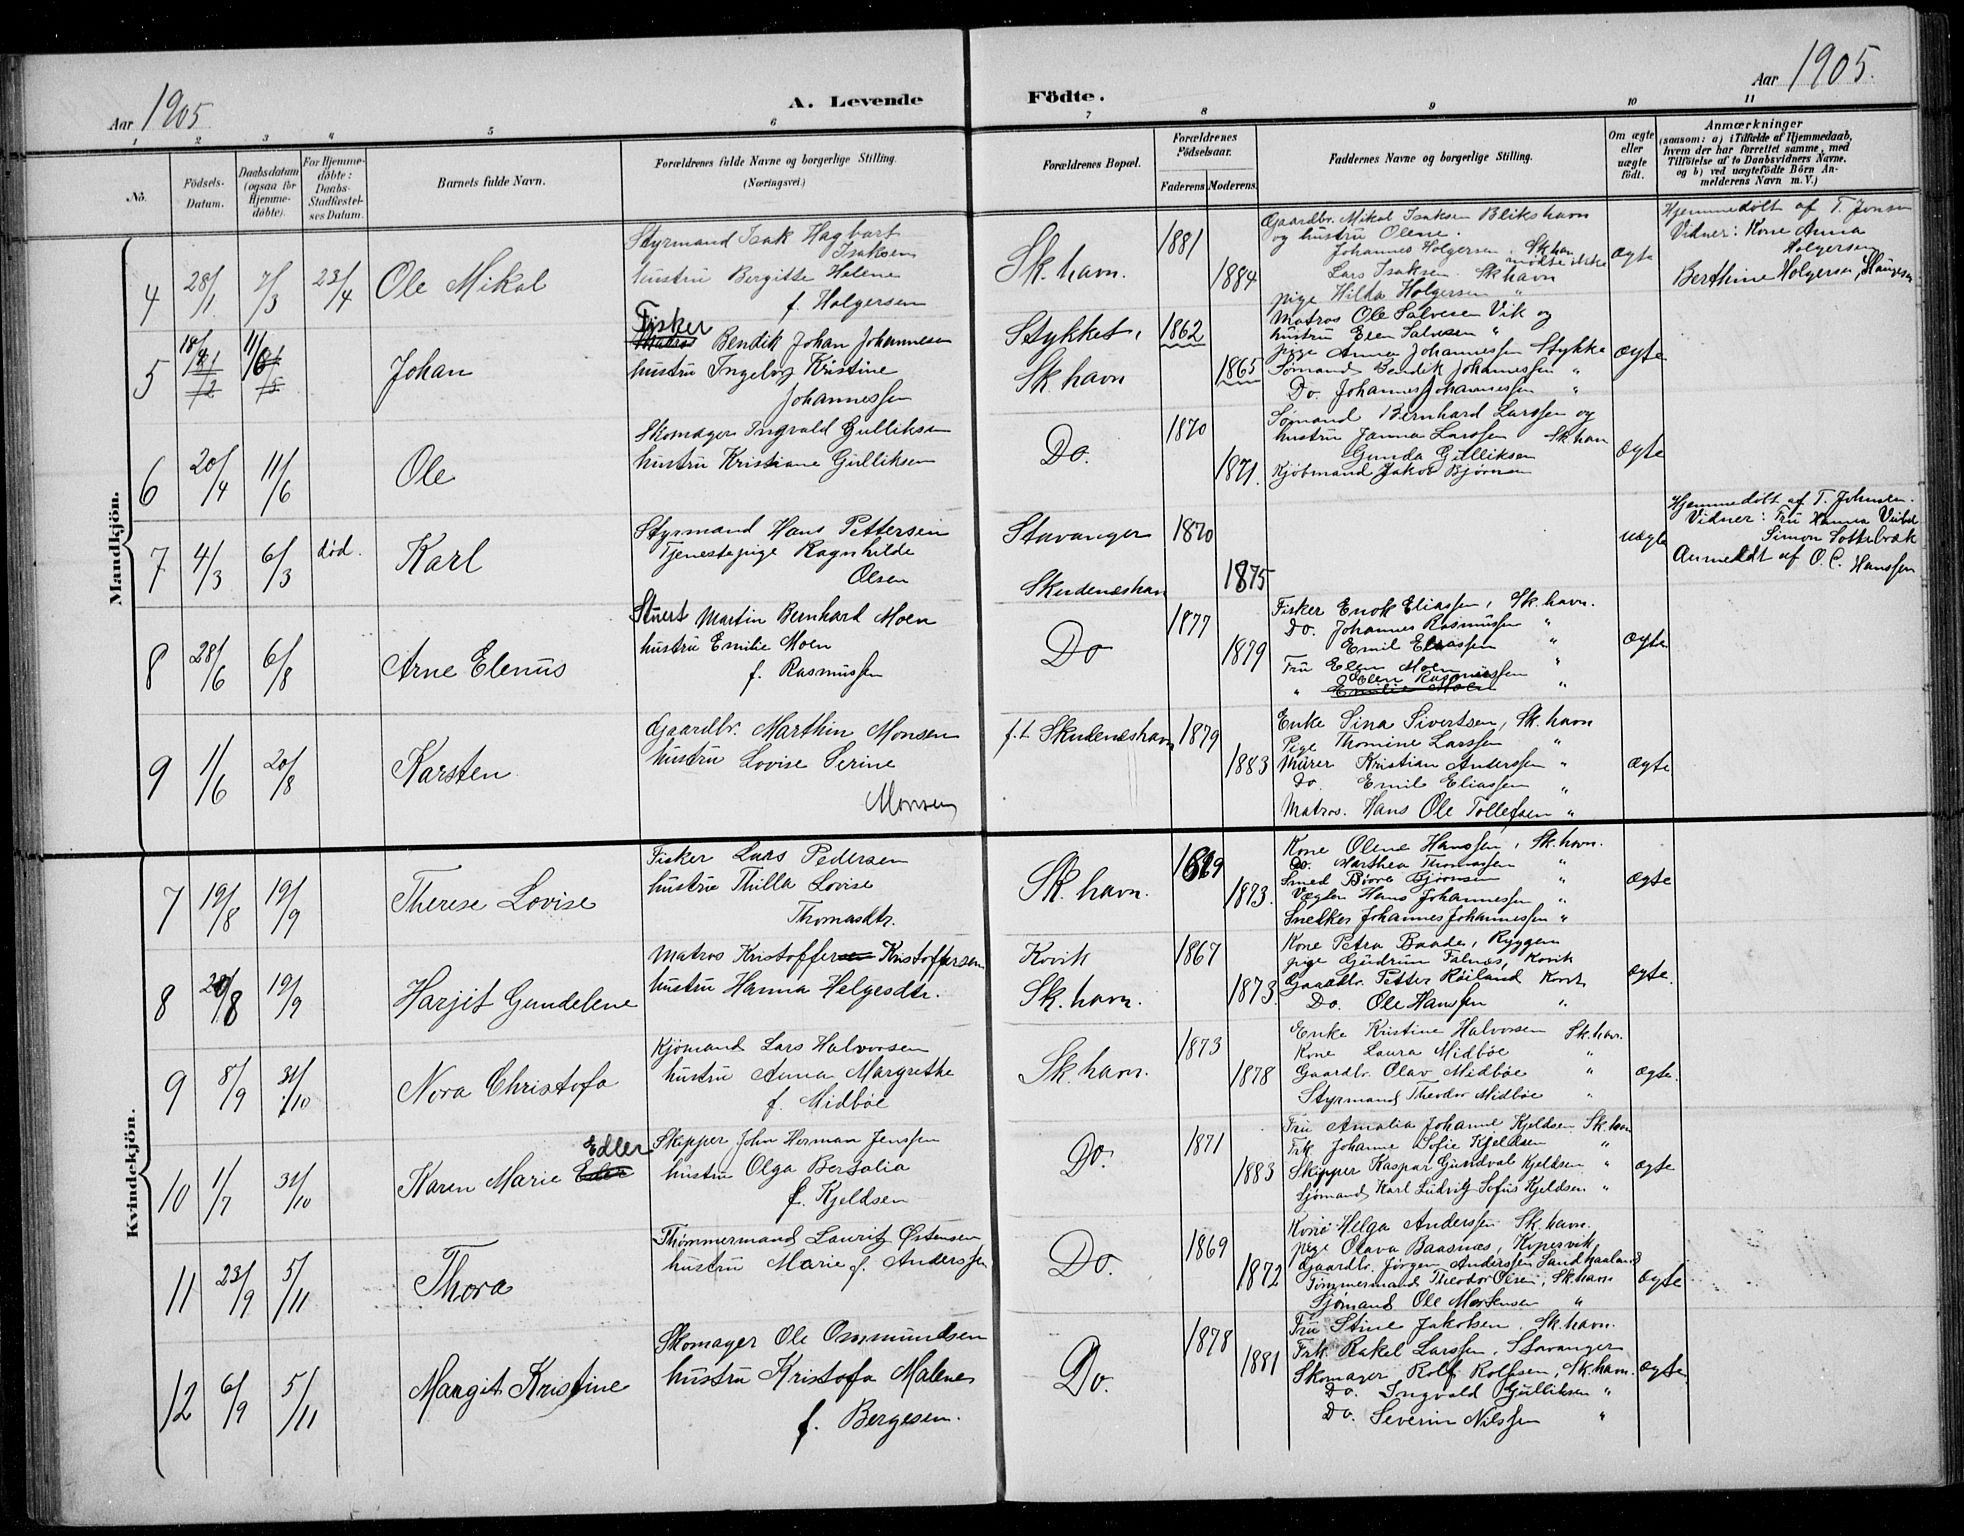 Aar 1905.
A. Levende Födte.
Aar 1905.
1 2 3 4 5 6 7 8 9 10 11
No.
Födsels-Datum.
Daabsdatum (ogsaa for Hjemme-döbte).
For Hjemme-döbte: Daabs-Stadfæstel-ses Datum.
Barnets fulde Navn.
Forældrenes fulde Navne og borgerlige Stilling. (Næringsvei.)
Forældrenes Bopæl.
Forældrenes Födselsaar.
Faderens. Moderens.
Faddernes Navne og borgerlige Stilling.
Om ægte eller uægte födt.
Anmærkninger
(saasom: a) i Tilfælde af Hjemmedaab, hvem der har forrettet samme, med Tilföielse af to Daabsvidners Navne. og b) ved uægtefödte Börn An-melderens Navn m. V.)
Mandkjön.
4 28/1 7/3 23/4 Ole Mikal
Styrmand Isak Hagbart
Isaksen
hustru Bergitte Helene
f. Holgersen
Sk. havn. 1881 1884
Gaardbr. Mikal Isaksen Blikshavn
og hustru Olene.
Johannes Holgersen Sk.havn mødte ikke
Lars Isaksen. Sk havn
pige Hilda Holgersen "
ægte
Hjemmedøbt af T. Jonsen
Vidner: Kone Anna
Holgersen
Berthine Holgersen,
5 Johan
Fisker
Matros Bendik Johan Johannesen
hustru Ingeborg Kristine
Johannessen
Stykket, Sk. havn 1862 1865
Matros Ole Salvesen Vik og
hustru Elen Salvesen "
pige Anna Johannessen Stykke
Sømand Bendik Johannessen "
Do. Johannes Johannessen "
ægte
6 20/4 11/6 Ole
Skomager Ingvald Gulliksen
hustru Kristiane Gulliksen
Do. 1870 1871.
Sømand Bernhard Larssen og
hustru Janna Larssen Sk.havn
Gunda Gulliksen
Kjøbmand Jakob Bjørnsen
ægte
7 4/3 6/3 død. Karl
Styrmand Hans Pettersen
Tjenestepige Ragnhilde
Olsen
Stavanger 1870
Skudeneshavn 1875
uægte
Hjemmedøbt af T. Johnsen.
Vidner: Fru Hanna
Simon
Anmeldt af O. C. Hanssen
8 28/6 6/8 Arne Elenus
Stuert Martin Bernhard Moen
hustru Emilie Moen
f. Rasmussen
Do 1877 1879
Fisker Enok Eliassen, Sk. havn.
Do. Johannes Rasmussen "
Emil Eliassen "
Fru Elen Moen "
Elen Rasmussen
" Emilie Moen "
ægte
9 1/6 20/8 Karsten
Gaardbr. Marthin Monsen
hustru Lovise Serine
Monsen
f.t. Skudeneshavn 1879 1883
Enke Sina Sivertsen, Sk. havn
Pige Thomine Larssen "
Murer Kristian Anderssen "
Do. Emil Eliassen "
Matros. Hans Ole Tollefsen "
ægte
Kvindekjön.
7 19/8 19/9 Therese Lovise
Fisker Lars Pedersen
hustru Thilla Lovise
Thomasdtr.
Sk. havn. 1873.
Kone Olene Hanssen, Sk. havn.
Do. Marthea Thomassen "
Smed Børre Bjørnsen "
Vægter Hans Johannessen "
Snekker Johannes Johannessen "
ægte
8 19/9 Harjit Gundelene
Matros Kristoffersen Kristoffersen
hustru Hanna Helgesdtr.
Kovik Sk. havn. 1867 1873.
Kone Petra Baade, Ryggen
pige Gudrun Falnes, Kovik
Gaardbr. Petter Røiland Kovik
Do. Ole Hanssen "
ægte.
9 8/9 31/10 Nora Christofa
Kjømand Lars Halvorsen
hustru Anna Margrethe
f. Midbøe
Sk. havn. 1873 1878
Enke Kristine Halvorsen Sk.havn.
Kone Laura Midbøe "
Gaardbr. Olav Midbøe "
Styrmand Theodor Midbøe "
ægte.
10 1/7 31/10 Karen Marie Edler
Skipper John Herman Jenssen
hustru Olga Bersalia
f. Kjeldsen
Do. 1871 1883
Fru Amalia Johanne Kjeldsen Sk.havn
Frk. Johanne Sofie Kjeldsen "
Skipper Kaspar Gundval Kjeldsen "
Sjømand Karl Ludvig Sofus Kjeldsen "
ægte
11 23/9 5/11 Thora
Thømmermand Lauritz Østensen
hustru Marie f. Anderssen
Do. 1869 1872
Kone Helga Anderssen Sk. havn.
pige Olava Baasnæs, Kopervik
Gaardbr. Jørgen Anderssen Sandhaaland
Tømmermand Theodor Olsen, Sk.havn
Sjømand Ole Mortensen "
ægte
12 6/9 5/11 Margit Kristine
Skomager Ole Ommundsen
hustru Kristofa Malene
f. Bergesen.
Do. 1878 1881
Fru Stine Jakobsen. Sk. havn.
Frk. Rakel Larssen, Stavanger
Skomager Rolf Rolfsen, Sk. havn.
Do. Ingvald Gulliksen "
Do. Severin Nilssen "
ægte.